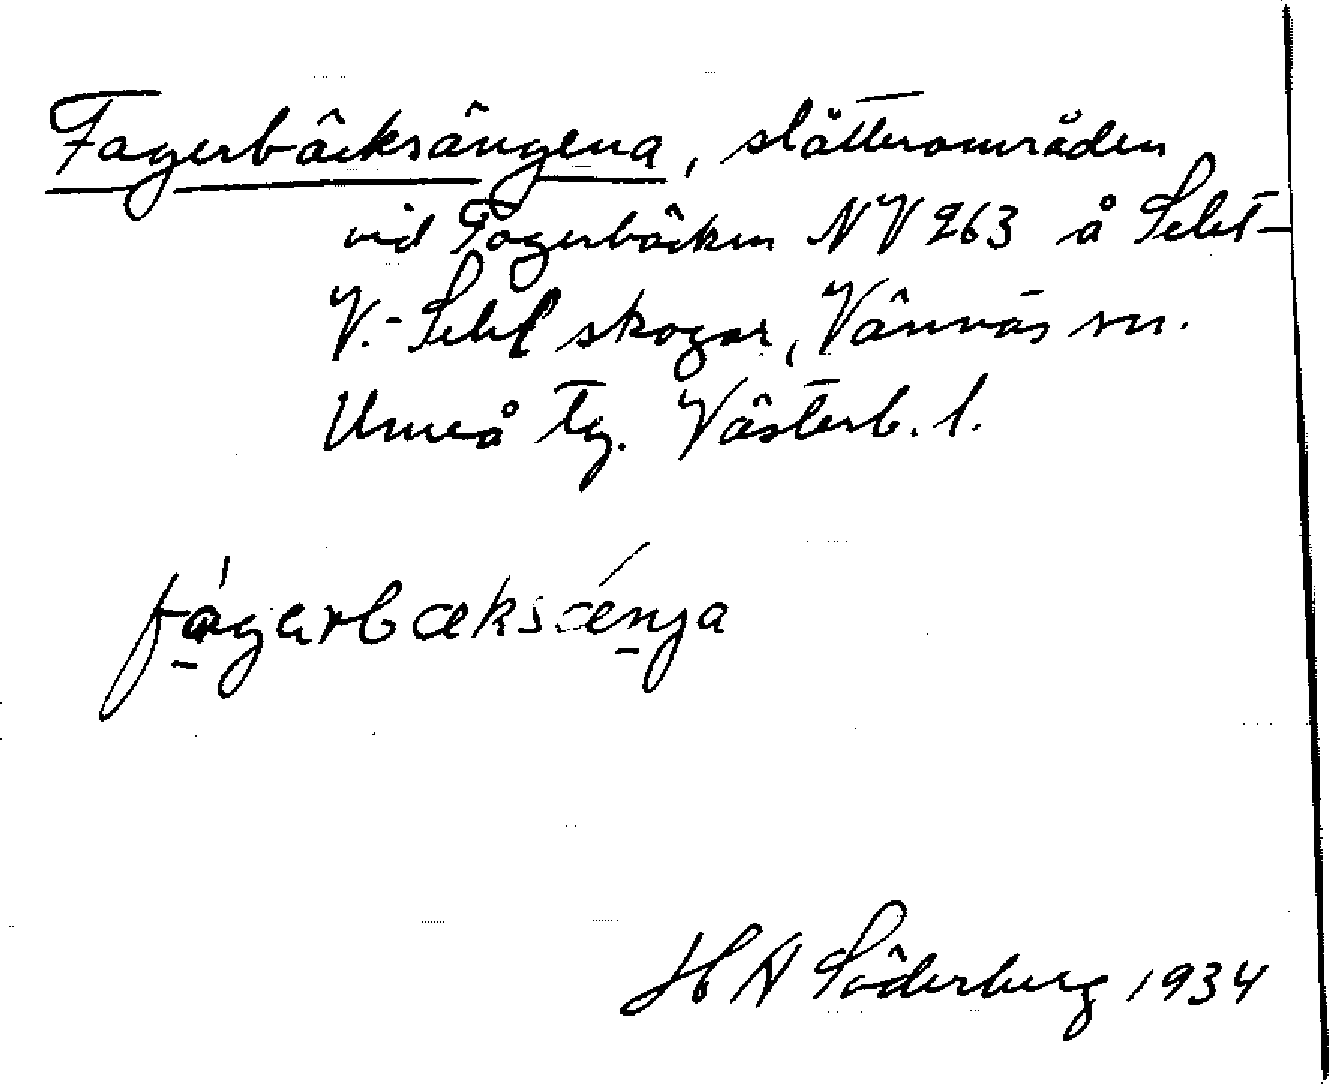 Fagerbäcksängena, slåtterområden
vid Fagerbäcken NV 263 å Selet-
V.-Selet skogar, Vännäs sn.
Umeå tg. Västerb. l.
fágerbæksǽnga
H A Söderberg 1934